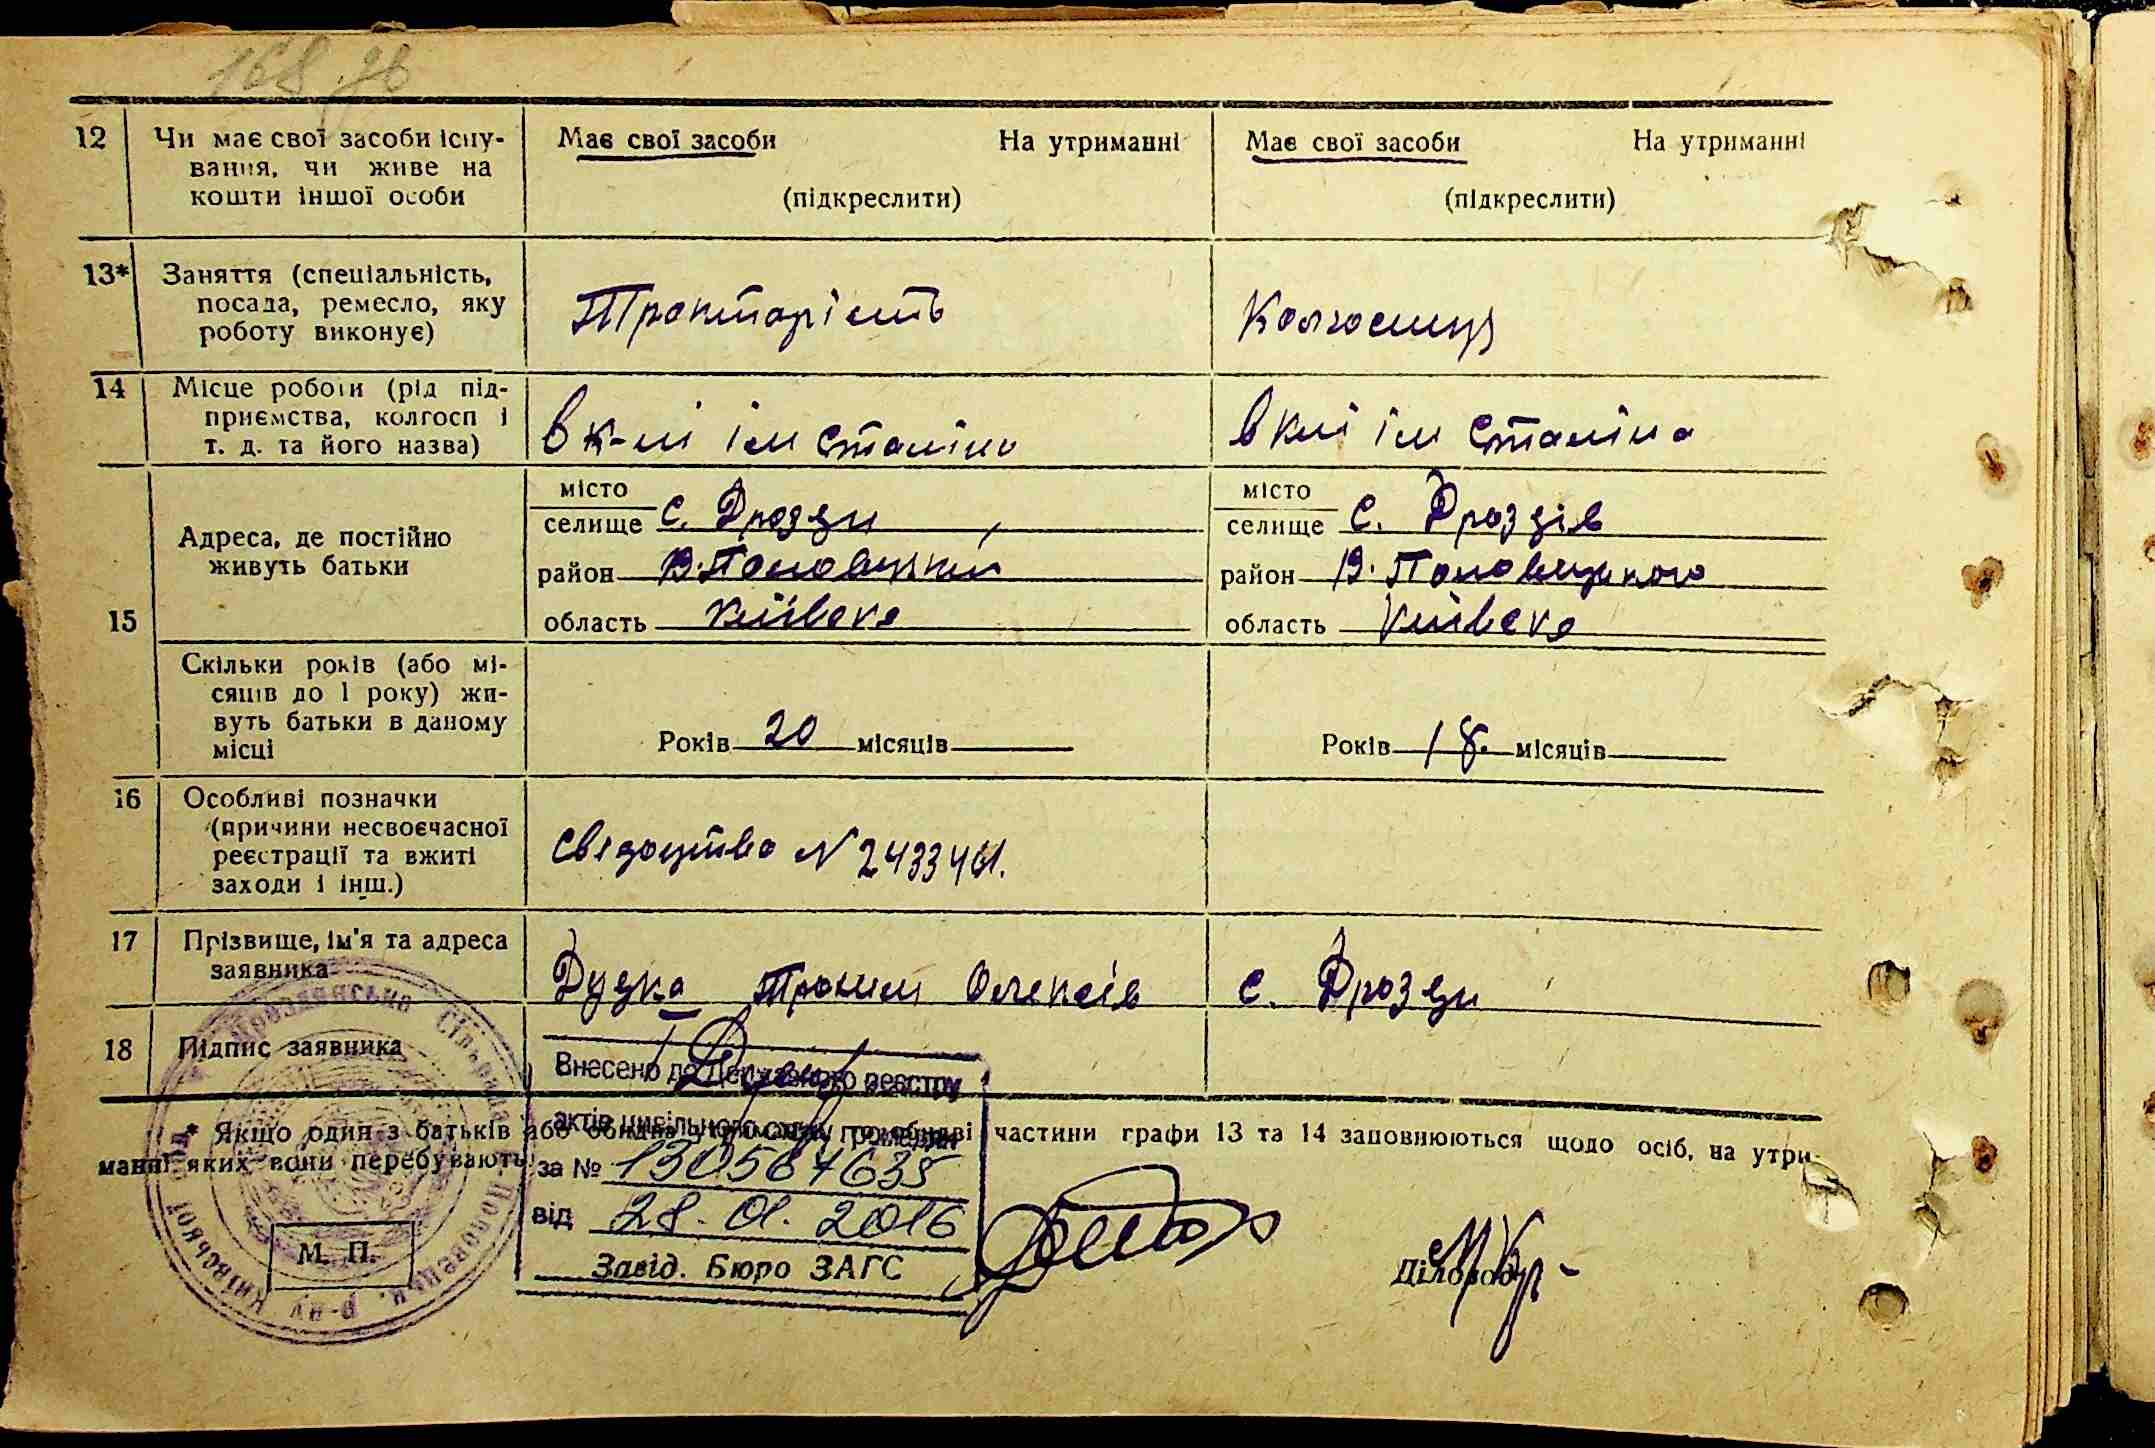 168.
12 Чи має свої засоби існу-
вання, чи живе на
кошти іншої особи
Має свої засоби На утриманні
(підкреслити)
Має свої засоби На утриманні
(підкреслити)
13* Заняття (спеціальність,
посада, ремесло, яку
роботу виконує)
Тракторість
Колгосниця
14 Місце роботи (рід під-
приємства, колгосп і
т. д. та його назва)
в к-лі ім Сталіна
в клі ім Сталіна
15 Адреса, де постійно
живуть батьки
місто
селище с. Дрозди
район В. Половецкий
область Київська
місто
селище с. Дроздів
район В. Половецкого
область Київська
Скільки років (або мі-
сяців до 1 року) жи-
вуть батьки в даному
місці
Років 20 місяців
Років 18. місяців
16 Особливі позначки
(причини несвоєчасної
реєстрації та вжиті
заходи і інш.)
Свідоцтво N 2433461.
17 Прізвище, ім'я та адреса
заявника
Дудка Трохим Олексів с. Дрозди
18 Підпис заявника
* Якщо один з батьків або обидва обидві частини графи 13 та 14 заповнюються щодо осіб, на утри-
манні яких вони перебувають.
Внесено до Державного реєстру
актів цивільного стану громадян
за № 1305674635
від 28.01.2016
Завід. Бюро ЗАГС
Діловод
М. П.
Дроздянська Сільрада Половецьк. р-ну Київської обл.